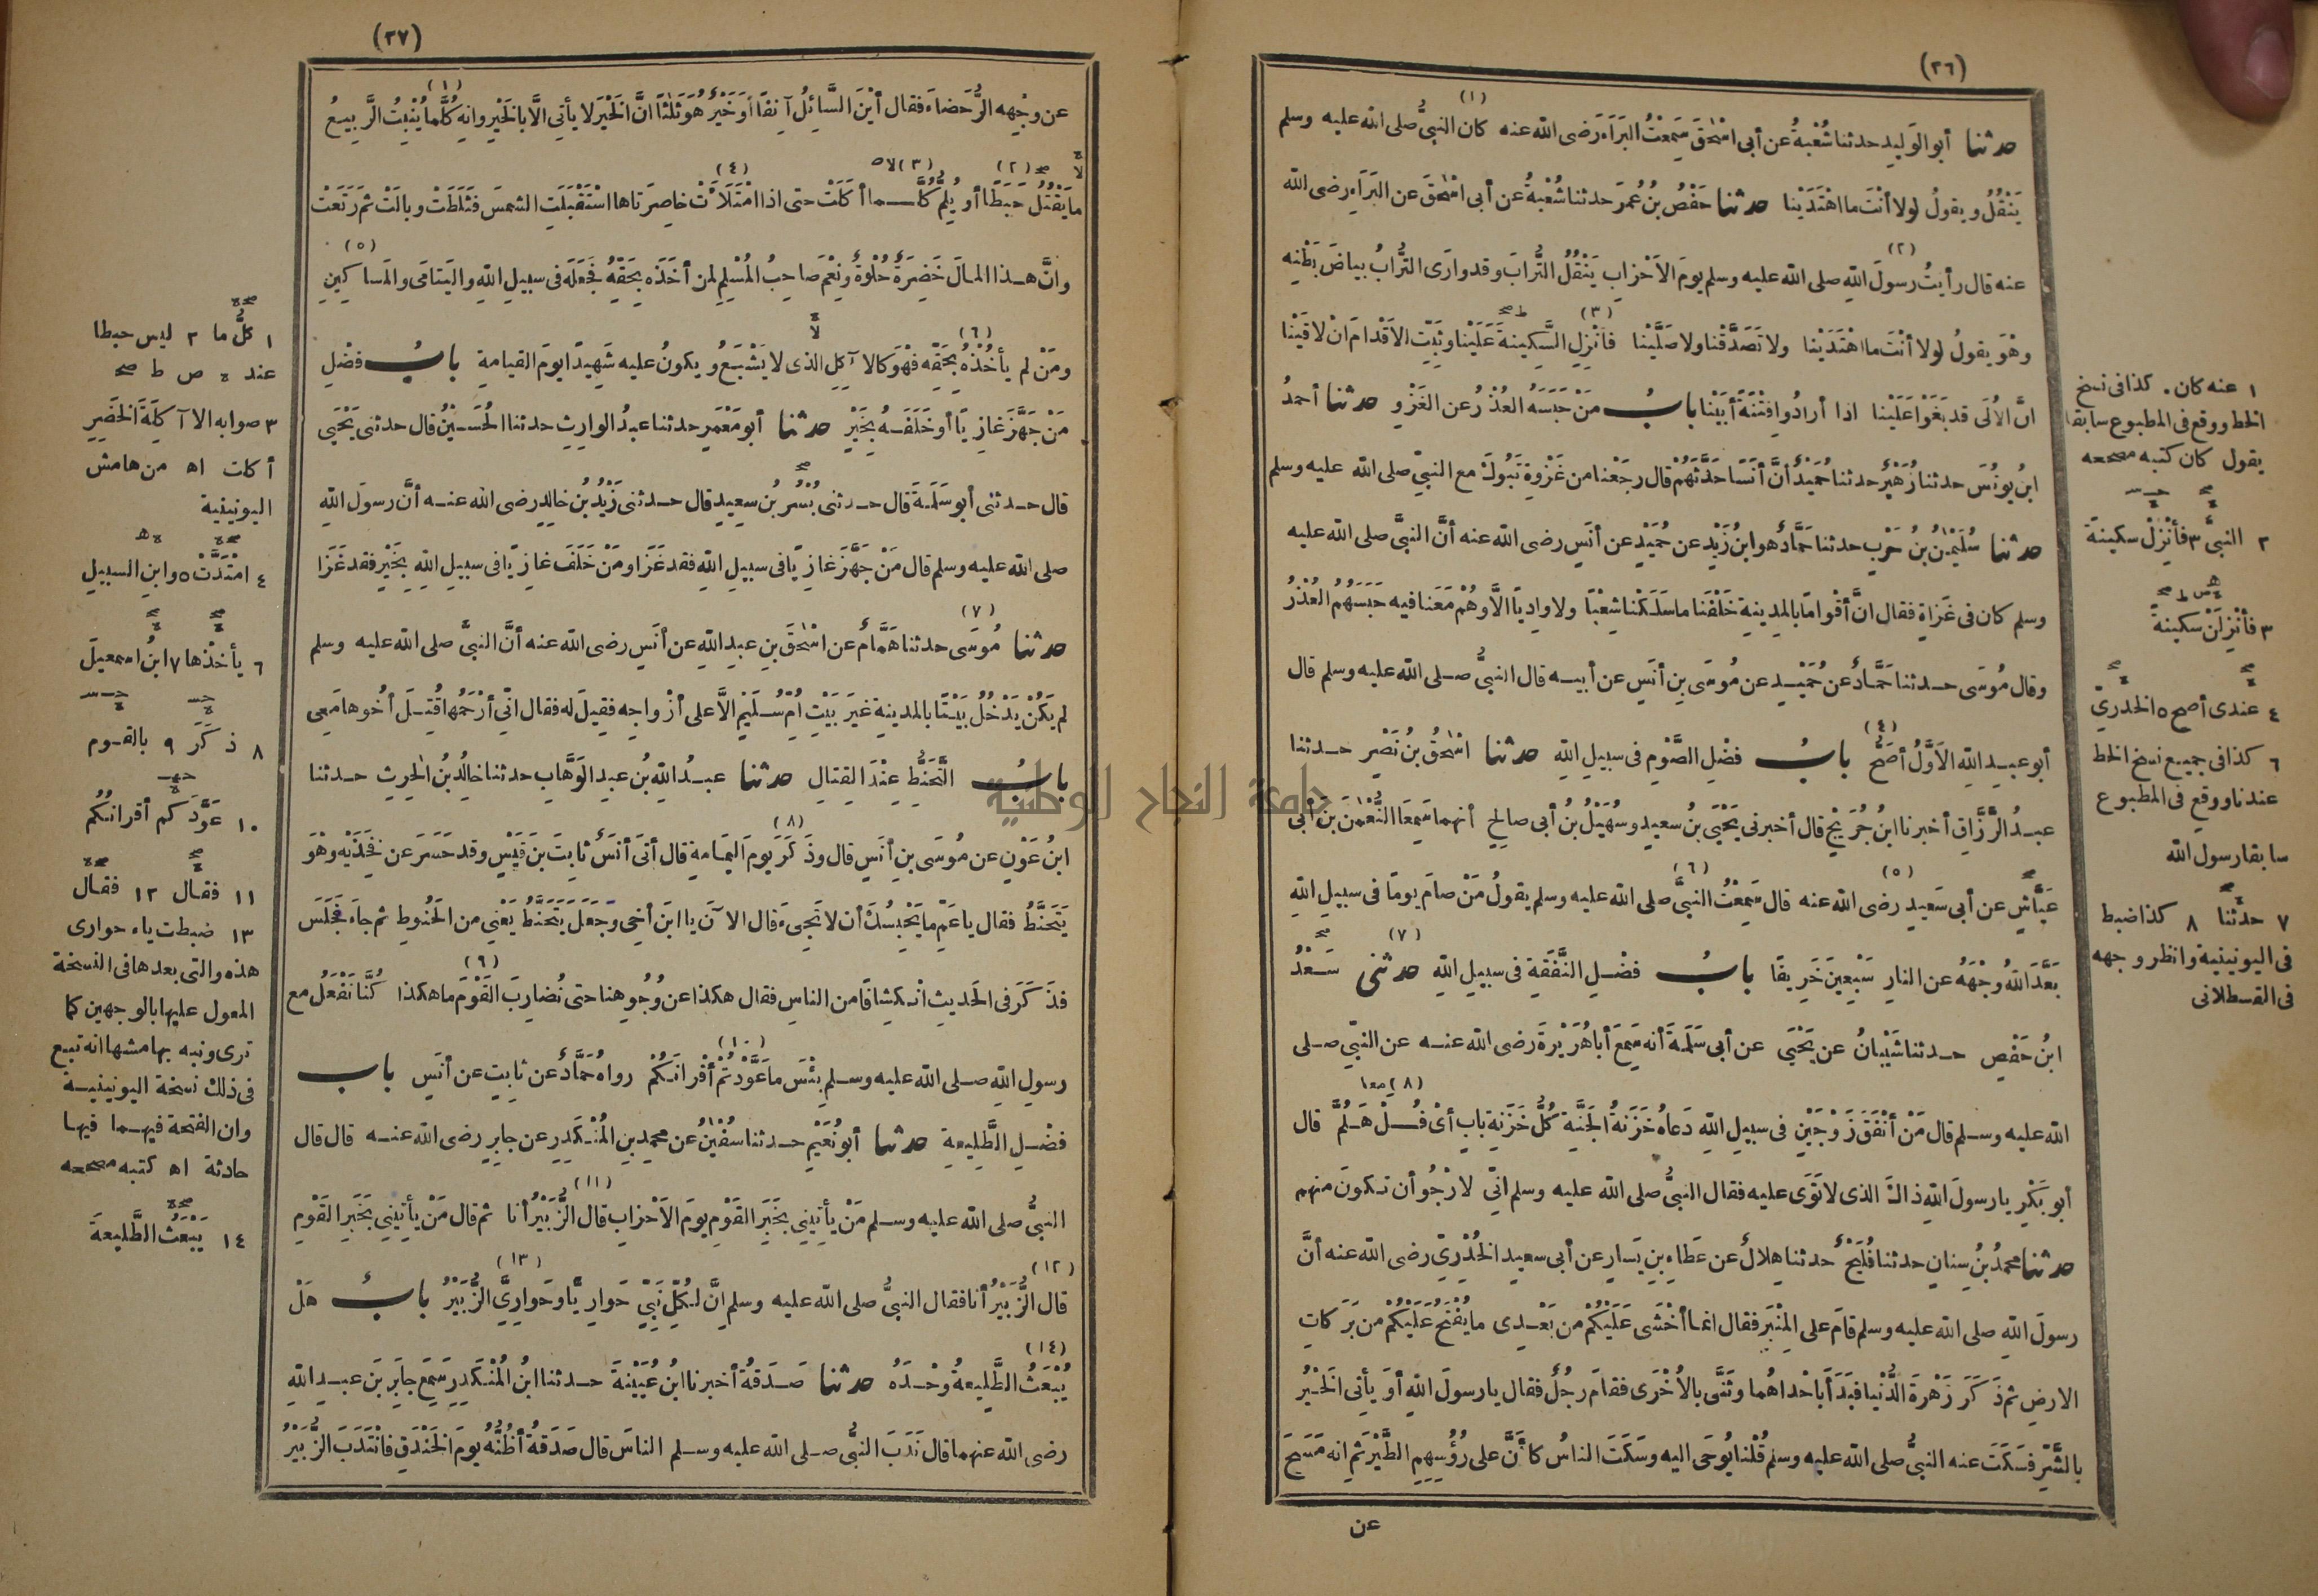 (٢٦)
(١)
حدثنا أبو الوَلِيدِ حدثنا شُعْبَةُ عن أبى اسْحٰقَ سَمِعْتُ البَرَاءَ رَضى الله عنه كان النبىُّ صلى الله عليه وسلم
يَنْقُلُ ويقولُ لولا أنْتَ ما اهْتَدَيْنا حدثنا حَفْصُ بنُ عُمَرَ حدثنا شُعْبَةُ عن أبى اسْحٰقَ عن البَرَاءِ رضى الله
(٢)
عنه قال رأيتُ رسولَ اللهِ صلى الله عليه وسلم يومَ الاَحْزابِ يَنْقُلُ التُّرابَ وقد وارَى التُّرابُ بياضَ بَطْنِهِ
(٣) ط صح
وهْوَ يقولُ لولا أنْتَ ما اهْتَدَيْنا ولا تَصَدَّقْنا ولا صَلَّيْنا فأَنْزِلِ السَّكِينةَ عَلَيْنا وثَبِّتِ الاَقْدامَ انْ لاقَيْنا
انَّ الاُلَى قد بَغَوْا عَلَيْنا اذا أرادُوا فِتْنَةً أبَيْنا بابُ مَنْ حَبَسَهُ العُذْرُ عن الغَزْوِ حدثنا أحمدُ
ابنُ يونُسَ حدثنا زُهَيْرٌ حدثنا حُمَيْدٌ أنَّ أنَسًا حَدَّثَهُمْ قال رجَعْنا من غَزْوةِ تَبُوكَ مع النبىِّ صلى الله عليه وسلم
حدثنا سُلَيْمٰنُ بنُ حَرْبٍ حدثنا حَمَّادٌ هو ابنُ زَيْدٍ عن حُمَيْدٍ عن أنَسٍ رضى الله عنه أنَّ النبىَّ صلى الله عليه
وسلم كان فى غَزاةٍ فقال انَّ أقْوامًا بالمدِينةِ خَلْفَنا ما سَلَكْنا شِعْبًا ولا وادِيًا الَّا وهُمْ مَعَنا فيه حَبَسَهُمُ العُذْرُ
وقال مُوسَى حدثنا حَمَّادٌ عن حُمَيْدٍ عن مُوسَى بنِ أنَسٍ عن أبيه قال النبىُّ صلى الله عليه وسلم قال
(٤)
أبو عبدِ اللهِ الاَوَّلُ أصَحُّ بابُ فضْلِ الصَّوْمِ فى سبيلِ اللهِ حدثنا اسْحٰقُ بنُ نَصْرٍ حدثنا
عبدُ الرَّزَّاقِ أخبرنا ابنُ جُرَيْجٍ قال أخبرنى يَحْيَى بنُ سعيدٍ وسُهَيْلُ بنُ أبى صالِحٍ أنهما سَمِعَا النُّعْمٰنَ بنَ أبى
(٥) (٦)
عَيَّاشٍ عن أبى سَعِيدٍ رضى الله عنه قال سَمِعْتُ النبىَّ صلى الله عليه وسلم يقولُ مَنْ صامَ يومًا فى سبيلِ اللهِ
(٧)
بَعَّدَ اللهُ وجْهَهُ عن النارِ سَبْعِينَ خَرِيفًا بابُ فضْلِ النَّفَقَةِ فى سبيلِ اللهِ حدثنى سَعْدُ
ابنُ حَفْصٍ حدثنا شَيْبانُ عن يَحْيَى عن أبى سَلَمَةَ أنه سَمِعَ أبا هُرَيْرةَ رضى الله عنه عن النبىِّ صلى
(٨) معا
الله عليه وسلم قال مَنْ أنْفَقَ زَوْجَيْنِ فى سبيلِ اللهِ دَعاهُ خَزَنةُ الجَنَّةِ كُلُّ خَزَنةِ بابٍ أىْ فُلْ هَلُمَّ قال
أبو بَكْرٍ يا رسولَ اللهِ ذاكَ الذى لا تَوَى عليه فقال النبىُّ صلى الله عليه وسلم انّى لَارْجُو أن تكونَ منهم
حدثنا محمدُ بنُ سِنانٍ حدثنا فُلَيْحٌ حدثنا هِلالٌ عن عَطاءِ بنِ يَسارٍ عن أبى سعيدٍ الخُدْرِىِّ رضى الله عنه أنَّ
رسولَ اللهِ صلى الله عليه وسلم قامَ على المِنْبَرِ فقال انما أخْشَى عَلَيْكُمْ من بَعْدِى ما يُفْتَحُ عَلَيْكُمْ من بَرَكاتِ
الارضِ ثم ذَكَرَ زَهْرةَ الدُّنْيا فبَدَأَ باحْداهُما وثَنَّى بالاُخْرَى فقامَ رجُلٌ فقال يا رسولَ اللهِ أوَ يأتى الخَيْرُ
بالشَّرِّ فسَكَتَ عنه النبىُّ صلى الله عليه وسلم قُلْنا يُوحَى اليه وسَكَتَ الناسُ كأَنَّ على رُؤُسِهِمِ الطَّيْرَ ثم انه مَسَحَ
عن
١ عنه كان. كذا فى نسخ
الخط ووقع فى المطبوع سابقا
يقول كان كتبه مصححه
٢ النبىُّ ٣ فأَنْزِلْ سكينةً
٣ فأَنْزِلَنْ سكينةً
٤ عندى أصح ٥ الخدرىّ
٦ كذا فى جميع نسخ الخط
عندنا ووقع فى المطبوع
سابقا رسول الله
٧ حدثنا ٨ كذا ضبط
فى اليونينية وانظر وجهه
فى القسطلانى
(٣٧)
(١)
عن وجْهِه الرُّحَضاءَ فقال أيْنَ السَّائِلُ آنِفًا أوَ خَيْرٌ هُوَ ثَلٰثًا انَّ الخَيْرَ لا يأتى الَّا بالخَيْرِ وانهِ كُلَّما يُنْبِتُ الرَّبِيعُ
(٢) صح (٣) لا ص (٤)
ما يَقْتُلُ حَبَطًا أو يُلِمُّ كُلَّما أكَلَتْ حتى اذا امْتَلَأَتْ خاصِرَتاها اسْتَقْبَلَتِ الشمسَ فثَلَطَتْ وبالَتْ ثم رَتَعَتْ
(٥)
وانَّ هذا المالَ خَضِرَةٌ حُلْوةٌ ونِعْمَ صاحِبُ المُسْلِمِ لمن أخَذَه بِحَقِّهِ فجَعَلَه فى سبيلِ اللهِ واليَتامَى والمَساكِينِ
(٦) لا
ومَنْ لم يأخُذْهُ بِحَقِّه فهْوَ كالا آكِلِ الذى لا يَشْبَعُ ويكونُ عليه شَهِيدًا يومَ القيامةِ بابُ فضْلِ
مَنْ جَهَّزَ غازِيًا أو خَلَفَهُ بِخَيْرٍ حدثنا أبو مَعْمَرٍ حدثنا عبدُ الوارِثِ حدثنا الحُسَيْنُ قال حدثنى يَحْيَى
قال حدثنى أبو سَلَمةَ قال حدثنى بُسْرُ بنُ سعِيدٍ قال حدثنى زَيْدُ بنُ خالِدٍ رضى الله عنه أنَّ رسولَ اللهِ
صلى الله عليه وسلم قال مَنْ جَهَّزَ غازِيًا فى سبيلِ اللهِ فقد غَزَا ومَنْ خَلَفَ غازِيًا فى سبيلِ اللهِ بِخَيْرٍ فقد غَزَا
(٧)
حدثنا مُوسَى حدثنا هَمَّامٌ عن اسْحٰقَ بنِ عبدِ اللهِ عن أنَسٍ رضى الله عنه أنَّ النبىَّ صلى الله عليه وسلم
لم يَكُنْ يَدْخُلُ بَيْتًا بالمدينةِ غيرَ بَيْتِ اُمِّ سُلَيْمٍ الَّا على أزْواجِه فقِيلَ له فقال انّى أرْحَمُها قُتِلَ أخُوها مَعِى
بابُ التَّحَنُّطِ عِنْدَ القِتالِ حدثنا عبدُ اللهِ بنُ عبدِ الوَهَّابِ حدثنا خالِدُ بنُ الحٰرِثِ حدثنا
(٨)
ابنُ عَوْنٍ عن مُوسَى بنِ أنَسٍ قال وذَكَرَ يومَ اليَمامةِ قال أتَى أنَسٌ ثابِتَ بنَ قَيْسٍ وقد حَسَرَ عن فَخِذَيْهِ وهْوَ
يَتَحَنَّطُ فقال يا عَمِّ ما يَحْبِسُكَ أن لا تَجِىءَ قال الآنَ يا ابنَ أخِى وجَعَلَ يَتَحَنَّطُ يَعْنِى من الحَنُوطِ ثم جاءَ فجَلَسَ
(٩)
فذَكَرَ فى الحَدِيثِ انْكِشافًا من الناسِ فقال هكذا عن وُجُوهِنا حتى نُضارِبَ القَوْمَ ما هكذا كُنَّا نَفْعَلُ مع
(١٠)
رسولِ اللهِ صلى الله عليه وسلم بِئْسَ ما عَوَّدْتُمْ أقْرانَكُمْ رواه حَمَّادٌ عن ثابِتٍ عن أنَسٍ باب
فضْلِ الطَّلِيعةِ حدثنا أبو نُعَيْمٍ حدثنا سُفْيٰنُ عن محمدِ بنِ المُنْكَدِرِ عن جابِرٍ رضى الله عنه قال قال
(١١)
النبىُّ صلى الله عليه وسلم مَنْ يأتِينِى بخَبَرِ القَوْمِ يومَ الاَحْزابِ قال الزُّبَيْرُ أنا ثم قال مَنْ يأتِينِى بخَبَرِ القَوْمِ
(١٢) (١٣)
قال الزُّبَيْرُ أنا فقال النبىُّ صلى الله عليه وسلم اِنَّ لكُلِّ نَبِىٍّ حَوارِيًّا وحَوارِىَّ الزُّبَيْرُ بابٌ هَلْ
(١٤)
يُبْعَثُ الطَّلِيعةُ وحْدَهُ حدثنا صَدَقةُ أخبرنا ابنُ عُيَيْنةَ حدثنا ابنُ المُنْكَدِرِ سَمِعَ جابِرَ بنَ عبدِ اللهِ
رضى الله عنهما قال نَدَبَ النبىُّ صلى الله عليه وسلم الناسَ قال صَدَقةُ أظُنُّهُ يومَ الخَنْدَقِ فانْتَدَبَ الزُّبَيْرُ
١ كلُّ ما ٢ ليس حبطا
عند ه ص ط صح
٣ صوابه الا آكِلَةَ الخَضِرِ
أكلت اه من هامش
اليونينية
٤ امتَدَّتْ ٥ وابنِ السبيلِ
٦ يأخذْها ٧ ابنُ اسمعيلَ
٨ ذكَرَ ٩ بالقوم
١٠ عَوَّدَكم أقرانُكم
١١ فقال ١٢ فقال
١٣ ضبطت ياء حوارى
هذه والتى بعدها فى النسخة
المعول عليها بالوجهين كما
ترى ونبه بهامشها انه تبع
فى ذلك نسخة اليونينية
وان الفتحة فيهما فيها
حادثة اه كتبه مصححه
١٤ يَبْعَثُ الطَّلِيعةَ
جامعة النجاح الوطنية